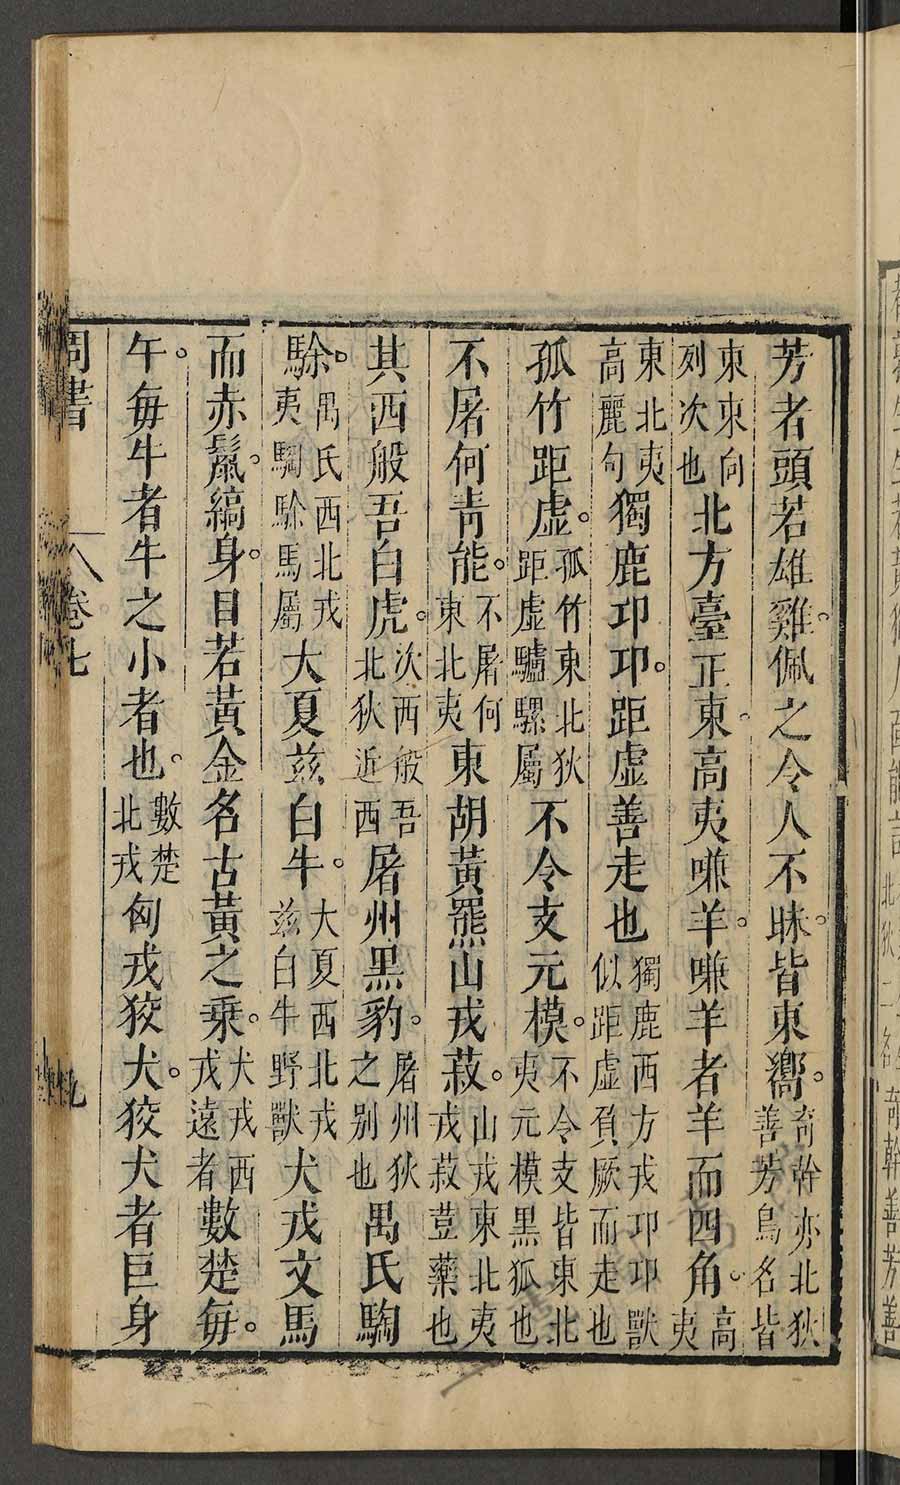 芳者頭若雄雞。佩之令人不昧。皆東嚮。奇幹亦北狄善芳鳥名皆
東東向列次也北方臺正東。高夷嗛羊。嗛羊者羊而四角。高夷
東北夷高麗句獨鹿卭卭。距虛善走也獨鹿西方戎卭卭獸似距虛負厥而走也
孤竹距虛。孤竹東北狄距虛驢騾屬不令支元模。不令支皆東北夷元模黑狐也
不屠何青能。不屠何東北夷東胡黃羆山戎菽。山戎東北夷戎菽荳藥也
其西般吾白虎。次西般吾北狄近西屠州黑豹。屠州狄之別也禺氏騊
駼。禺氏西北戎夷騊駼馬屬大夏茲白牛。大夏西北戎茲白牛野獸犬戎文馬
而赤鬣。縞身。目若黃金名古黃之乘。犬戎西戎遠者數楚每。
午。每牛者牛之小者也。數楚北戎匈戎狡犬。狡犬者巨身
周書
卷七